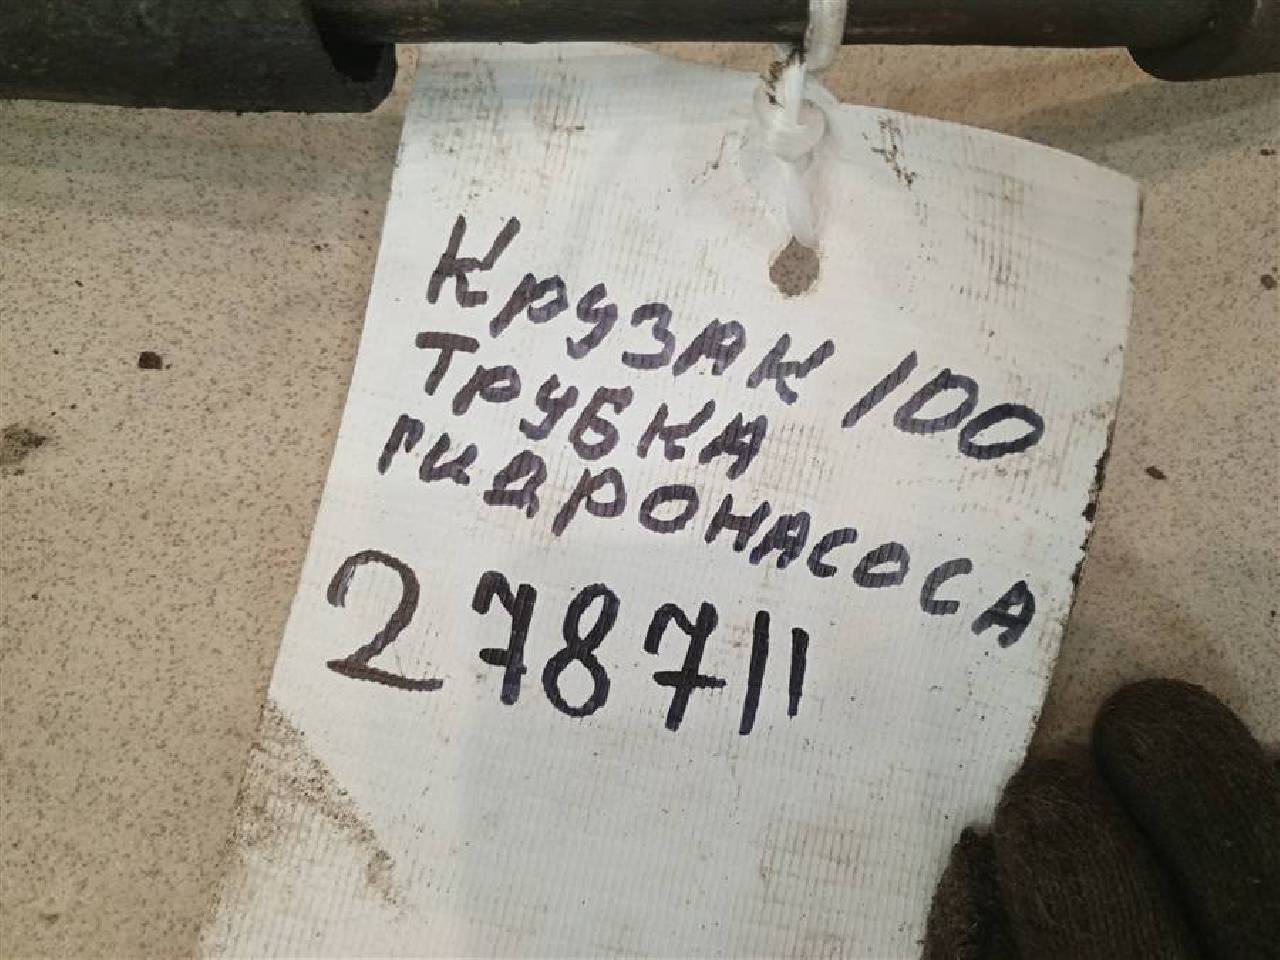 Крузак 100
Трубка
гидронасоса
278711